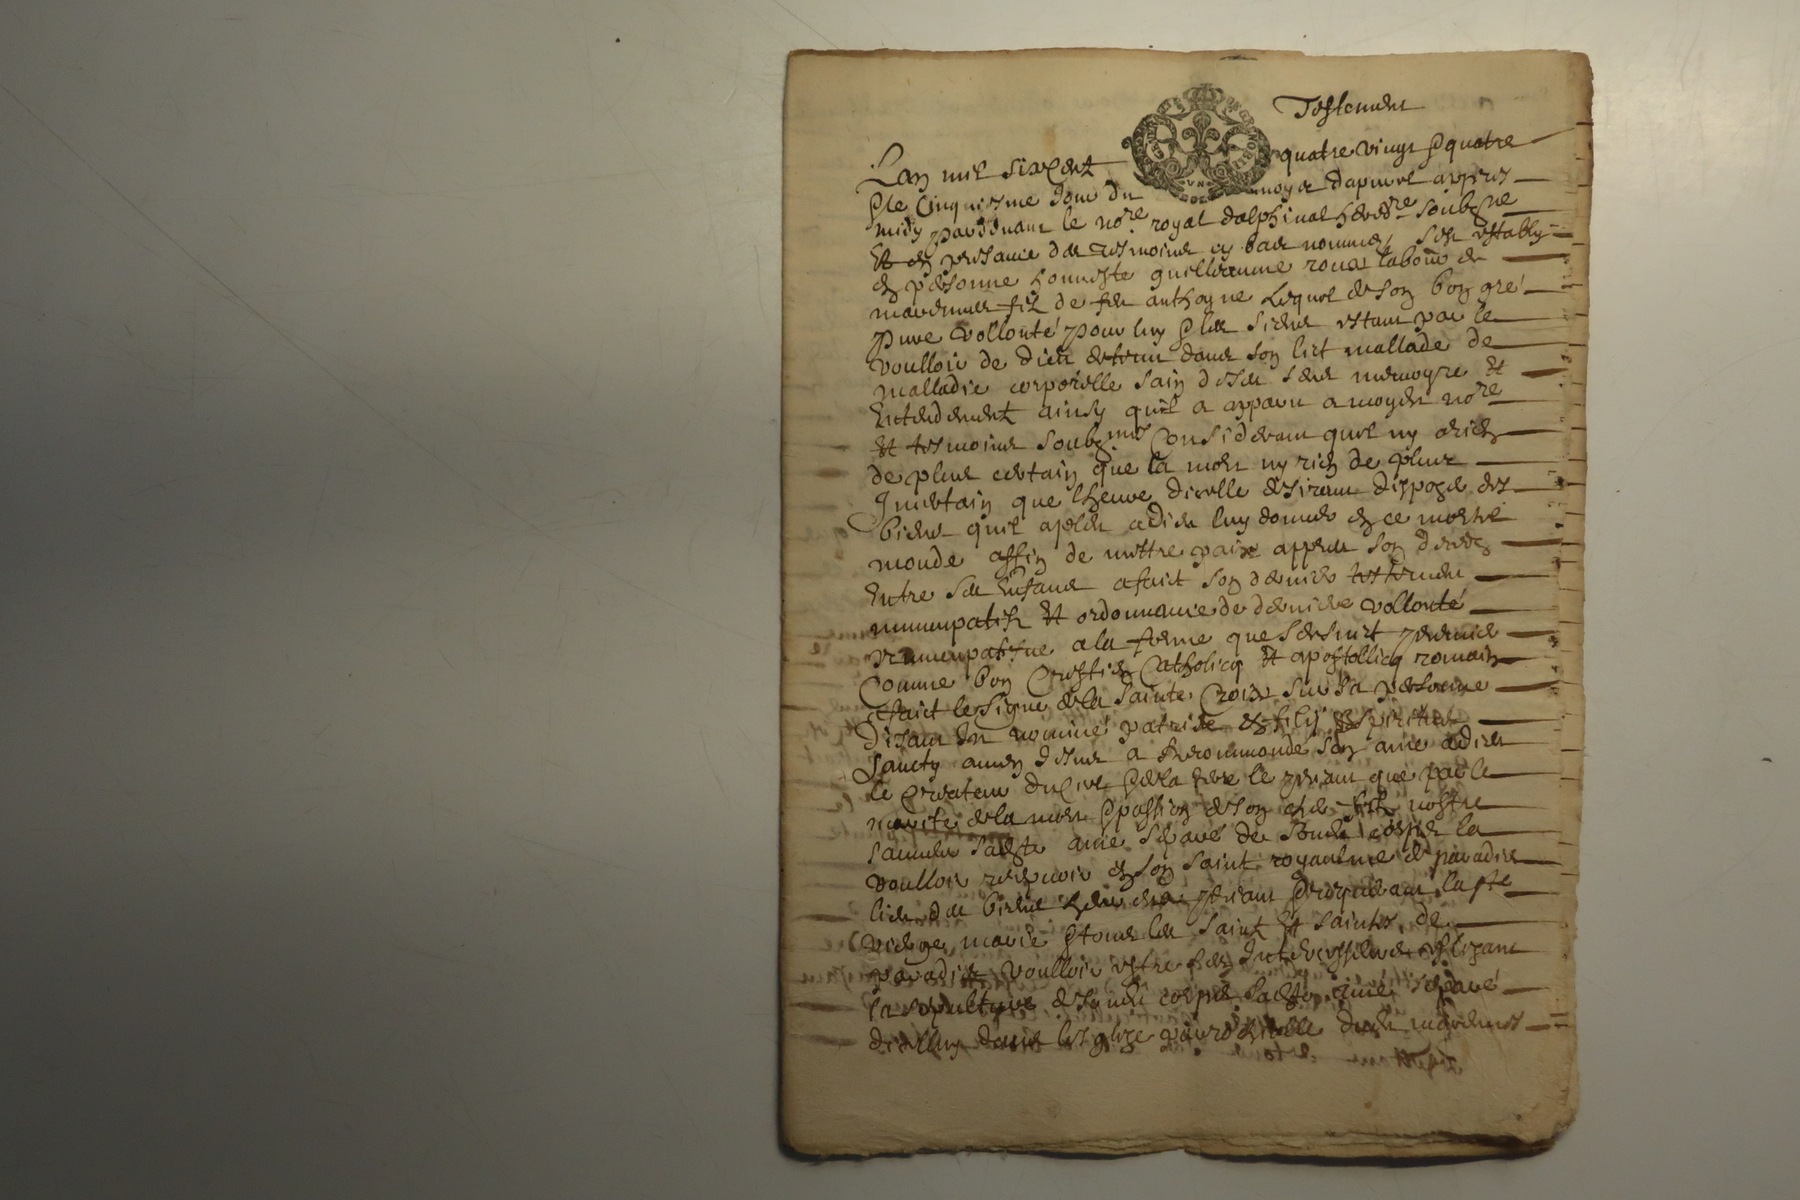 Testement
Lan mil sixcent quatre vingt & quatre
& le cinquiesme jour du moys dapvril appres
midy pardevant le nore royal dalphinal heredre soubsne
Et en presance des tesmoins cy bas nommes sest estably
en personne honneste guilliaume roux labour de
fil de feu anthoyne lequel de son bon gré
pure vollonté pour luy & les siens estant par le
voulloir de dieu detenu dans son lict mallade de
malladie corporelle sain de ses sens memoyre Et
Entendement ainsy quil a apparu a moydit nore
Et tesmoins soubsnes Considerant quil ny a rien
de plus certain que la mort ny rien de plus
Incertain que lheure dicelle desirant disposer des
biens quil a pleu a dieu luy donner en ce mortel
monde affin de mettre paix appres son deces
Entre ses Enfans a faict son dernier testement
nuncupatif Et ordonnance de derniere vollonté
nuncupative a la forme que sensuict premier
Comme bon Crestien Catholicq Et apostollicq romain
a faict le signe de la sainte Croix sur sa personne
disant In nomine patris et filij et spiritus
sancty amen a Recommandé son ame a dieu
le createur du ciel & de la terre le priant que par le
merite de la mort & passion de son cher fils nostre
sauveur sadte ame separé de sondit corps la
voulloir recepvoir en son saint royaulme de paradis
lieu des biens priant & requerant la ste
vierge marie & tous les saints Et saintes de
paradis voulloir estre ses Intercesseurs eslizant
la sepulture de sondit corps sadte ame separé
dicelluy dans lesglize parrochielle dudit